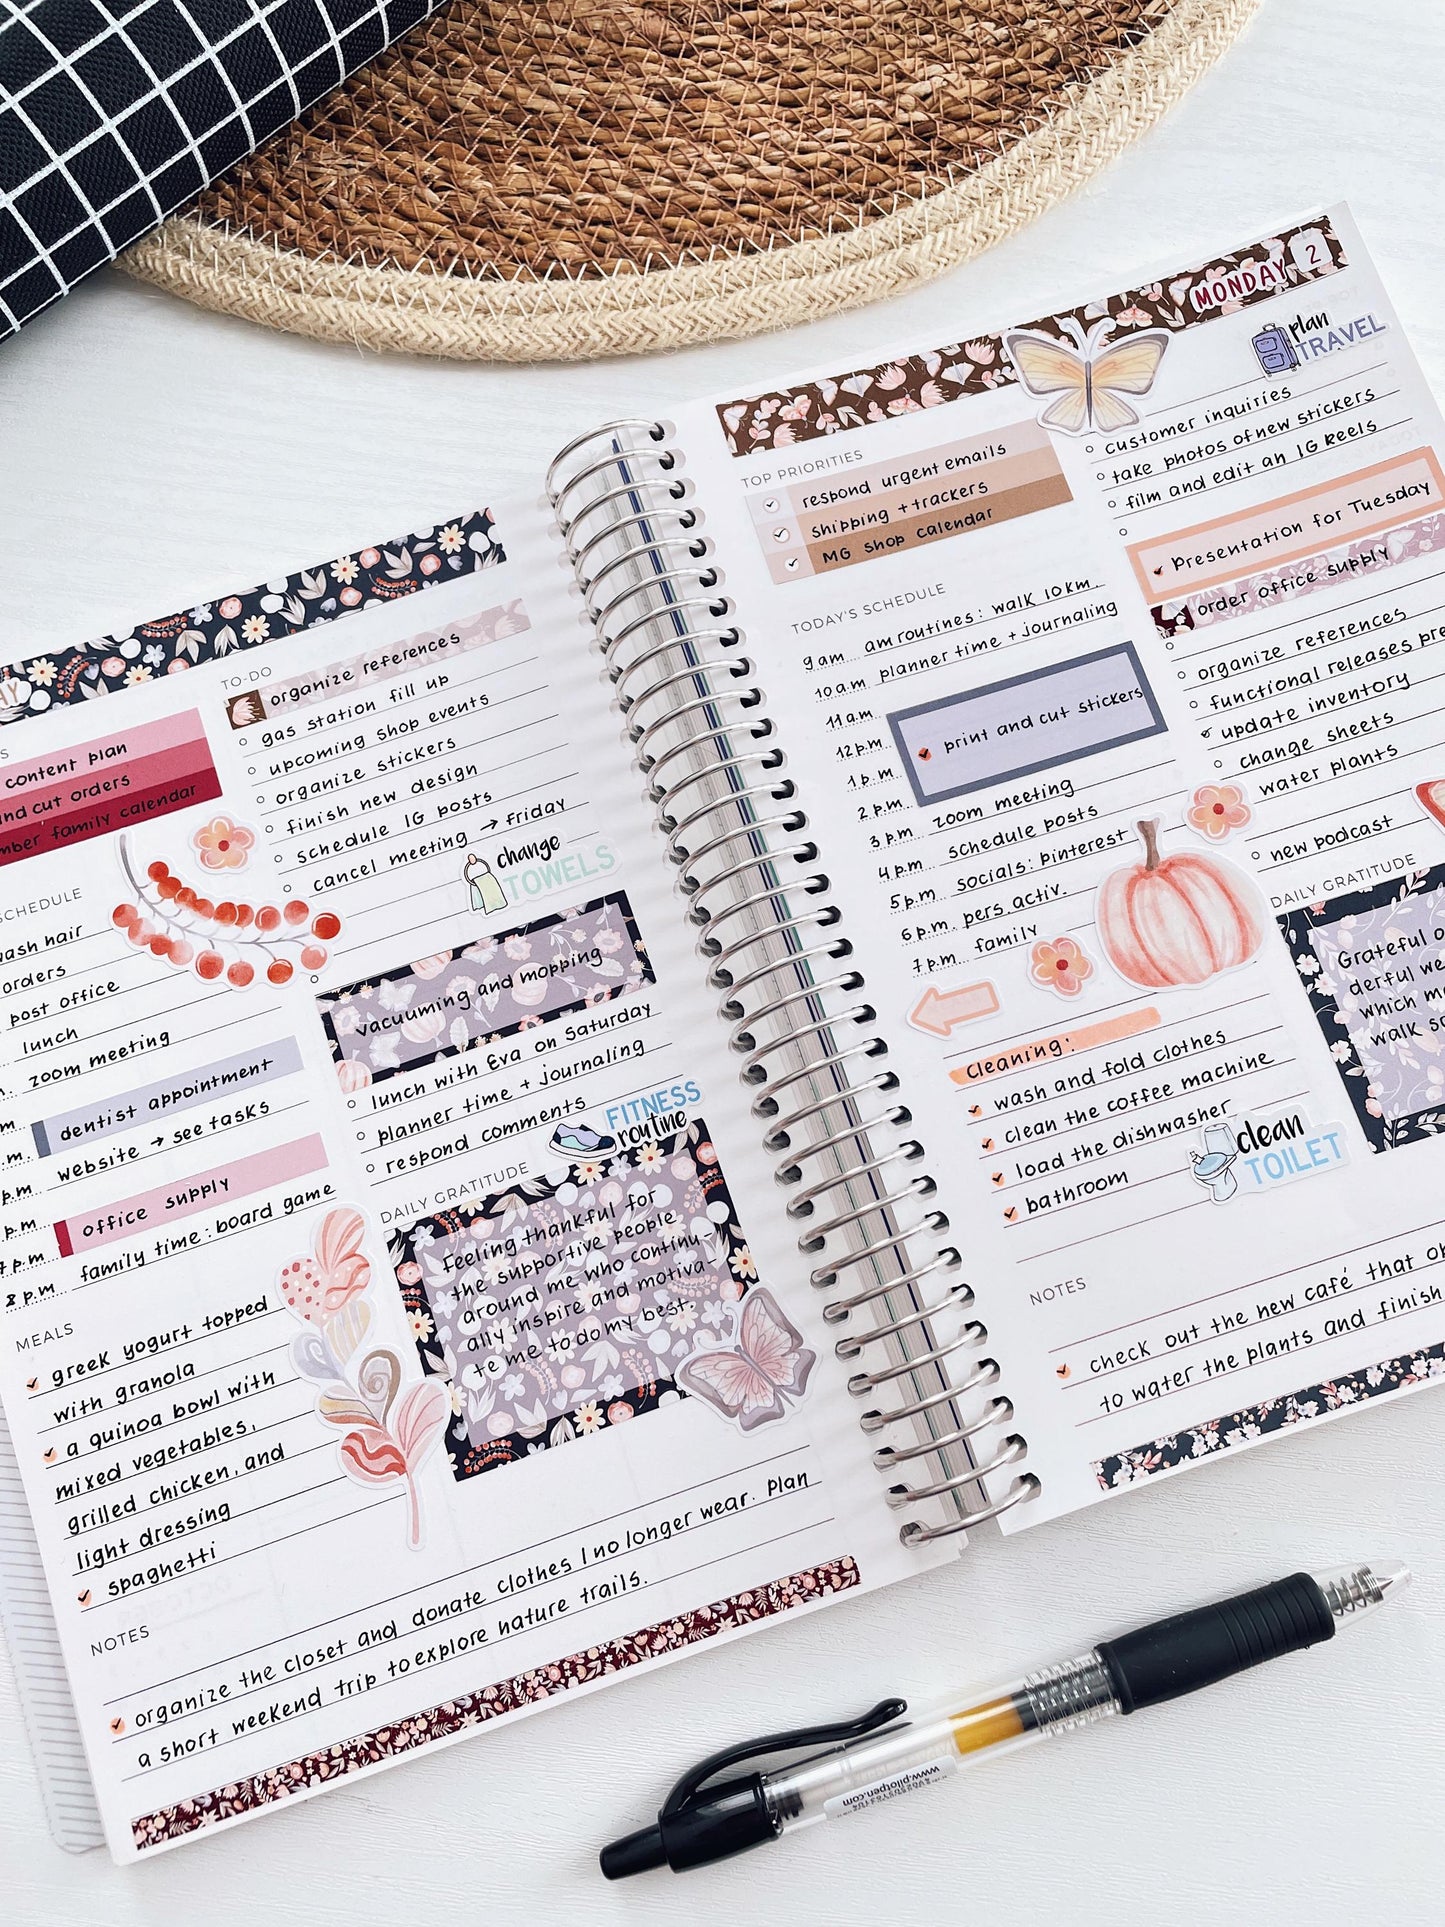 AY
TO-DO
organize references
gas station fill up
upcoming shop events
organize stickers
finish new design
schedule IG posts
cancel meeting → friday
change
TOWELS
content plan
and cut orders
family calendar
SCHEDULE
hair
orders
post office
lunch
zoom meeting
dentist appointment
p.m. website → see tasks
p.m. office supply
7 p.m. family time: board game
8 p.m.
vacuuming and mopping
lunch with Eva on Saturday
planner time + journaling
respond comments
FITNESS
routine
DAILY GRATITUDE
Feeling thankful for
the supportive people
around me who continu-
ally inspire and motiva-
te me to do my best.
MEALS
greek yogurt topped
with granola
a quinoa bowl with
mixed vegetables,
grilled chicken, and
light dressing
spaghetti
NOTES
organize the closet and donate clothes I no longer wear. Plan
a short weekend trip to explore nature trails.
MONDAY 2
plan
TRAVEL
TOP PRIORITIES
respond urgent emails
shipping + trackers
MG shop calendar
TODAY'S SCHEDULE
9 am am routines: walk 10km.
10 a.m planner time + journaling
11 a.m
12 p.m print and cut stickers
1 p.m
2 p.m
3 p.m zoom meeting
4 p.m schedule posts
5 p.m socials: pinterest
6 p.m pers. activ.
7 p.m family
customer inquiries
take photos of new stickers
film and edit an IG Reels
Presentation for Tuesday
order office supply
organize references
functional releases
update inventory
change sheets
water plants
new podcast
DAILY GRATITUDE
Grateful
derful
which
walk
Cleaning:
wash and fold clothes
clean the coffee machine
load the dishwasher
bathroom
clean
TOILET
NOTES
check out the new café that
to water the plants and finish
www.pilotpen.com